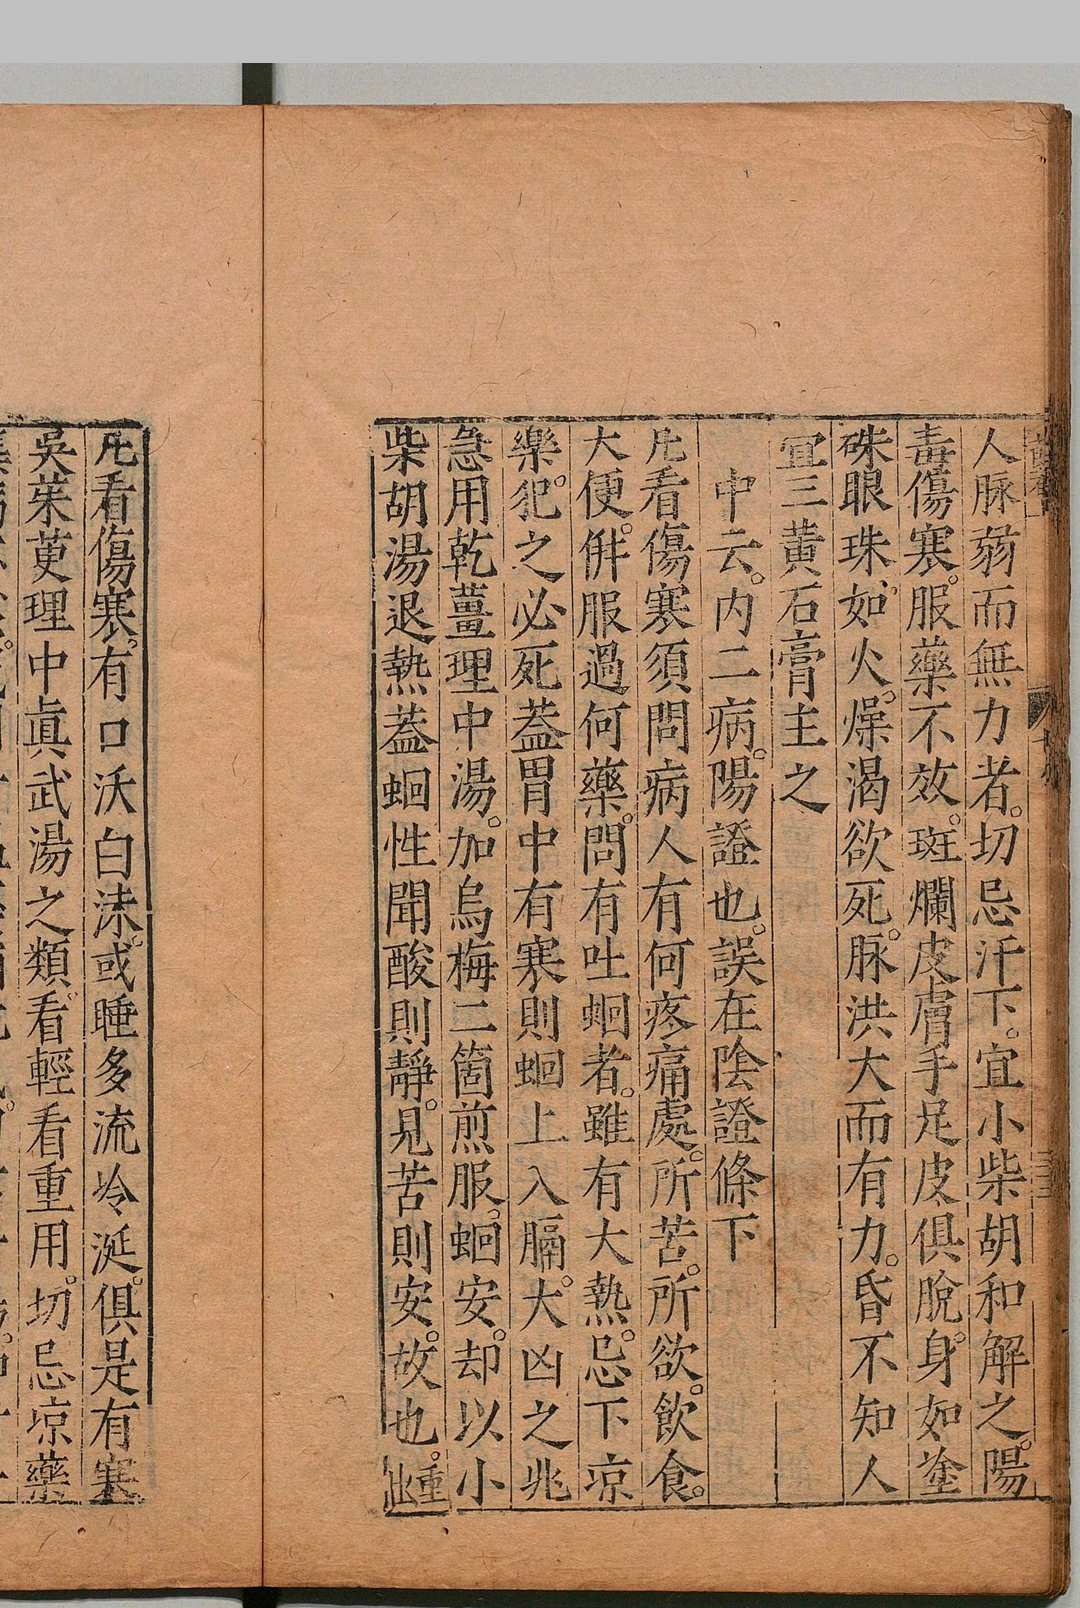 人脉弱而無力者。切忌汗下。宜小柴胡和解之。陽
毒傷寒。服藥不效。斑爛皮膚手足皮俱脫。身如塗
硃眼珠如火。燥渴欲死。脉洪大而有力。昏不知人
宜三黃石膏主之
中云。內二病。陽證也。誤在陰證條下
凡看傷寒須問病人有何疼痛處。所苦。所欲。飲食。
大便。併服過何藥。問有吐蛔者。雖有大熱。忌下凉
藥。犯之必死蓋胃中有寒則蛔上入膈。大凶之兆
急用乾薑理中湯。加烏梅二箇煎服。蛔安。却以小
柴胡湯退熱蓋蛔性聞酸則靜。見苦則安。故也。
凡看傷寒。有口沃白沫。或睡多流冷涎。俱是有寒
吳茱萸理中眞武湯之類。看輕看重用。切忌凉藥